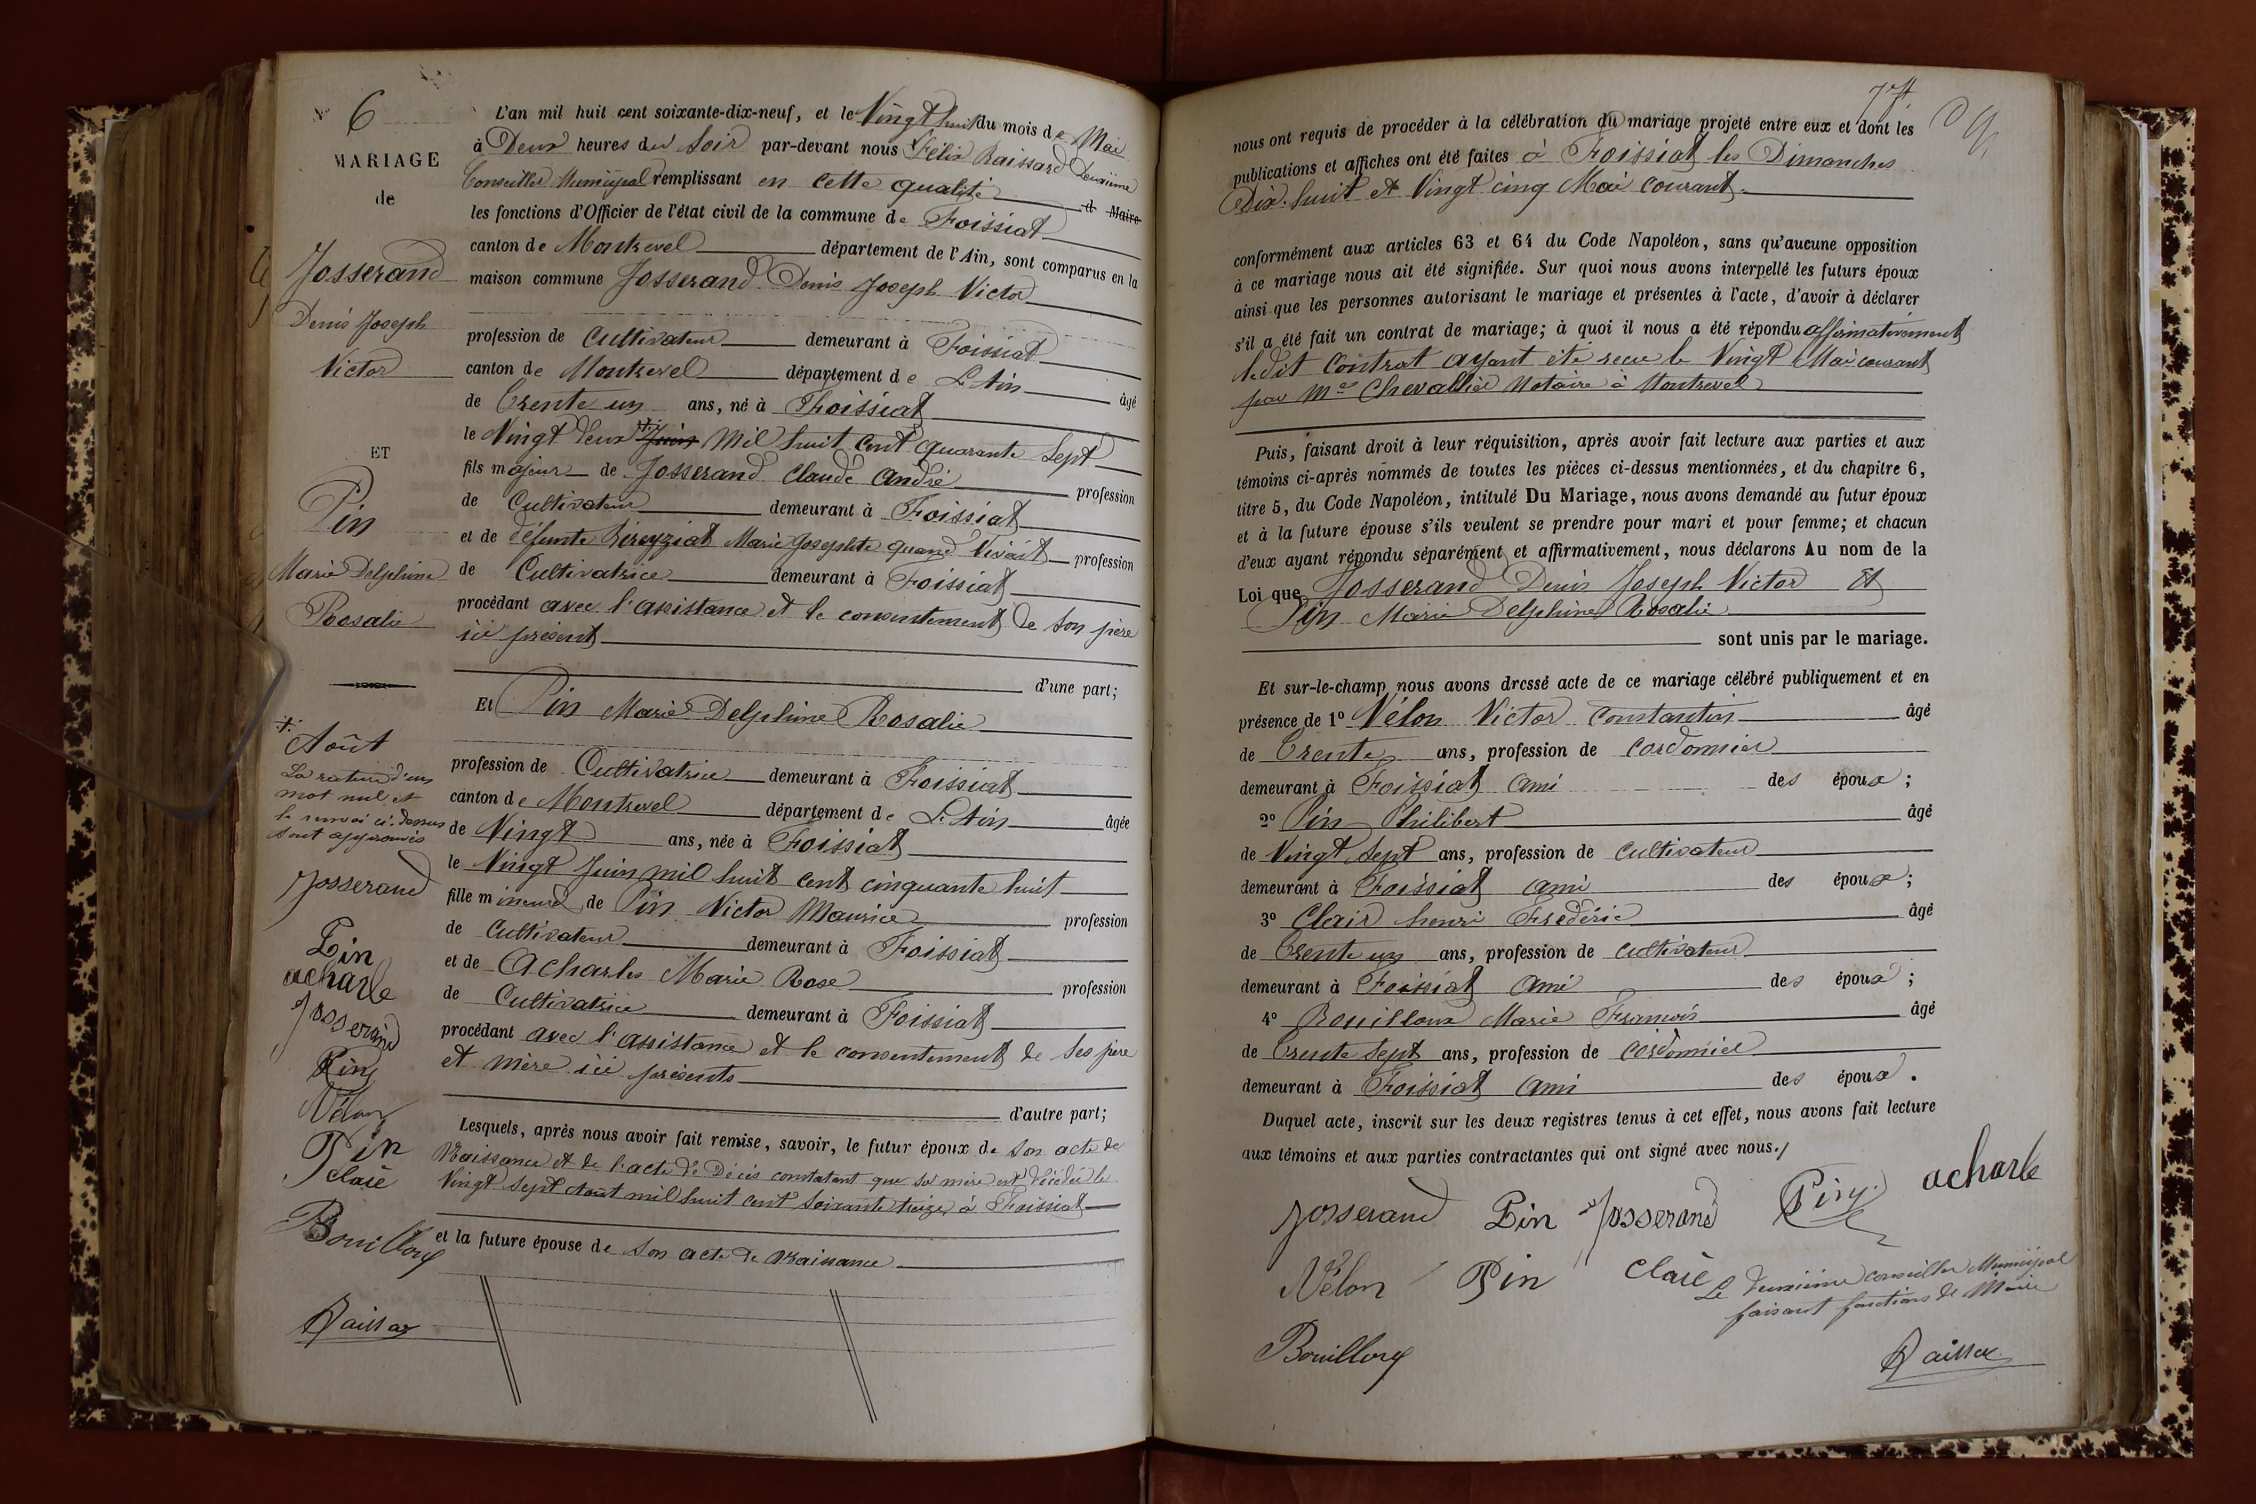 N° 6
MARIAGE
de
Josserand
Denis Joseph
Victor
ET
Pin
Marie Delphine
Rosalie
+ Août
La rature d'un
mot nul et
le renvoi ci-dessus
sont approuvés
Josserand
Pin
acharle
Josserand
Pin
Vélon
Pin
clair
Bouilloux
Raissar
L'an mil huit cent soixante-dix-neuf, et le Vingt huit du mois de Mai
à Deux heures du Soir par-devant nous Félix Raissard Deuxième
Conseiller Municipal remplissant en cette qualité d Maire
les fonctions d'Officier de l'état civil de la commune de Foissiat
canton de Montrevel département de l'Ain, sont comparus en la
maison commune Josserand Denis Joseph Victor
profession de Cultivateur demeurant à Foissiat
canton de Montrevel département de L'Ain âgé
de Trente un ans, né à Foissiat
le Vingt deux + Juin Mil huit cent quarante Sept
fils majeur de Josserand Claude André profession
de Cultivateur demeurant à Foissiat
et de défunte Béreyziat Marie Josephte quand Vivait profession
de Cultivatrice demeurant à Foissiat
procédant avec l'assistance et le consentement de son père
ici présent
d'une part;
Et Pin Marie Delphine Rosalie
profession de Cultivatrice demeurant à Foissiat
canton de Montrevel département de L'Ain âgée
de Vingt ans, née à Foissiat
le Vingt Juin mil huit cent cinquante huit
fille mineure de Pin Victor Maurice profession
de Cultivateur demeurant à Foissiat
et de Acharles Marie Rose profession
de Cultivatrice demeurant à Foissiat
procédant avec l'assistance et le consentement de ses père
et mère ici présents
d'autre part;
Lesquels, après nous avoir fait remise, savoir, le futur époux de son acte de
Naissance et de l'acte de Décès constatant que sa mère est décédée le
Vingt sept Août mil huit cent soixante treize à Foissiat
et la future épouse de son acte de Naissance
nous ont requis de procéder à la célébration du mariage projeté entre eux et dont les
publications et affiches ont été faites à Foissiat les Dimanches
Dix-huit et Vingt cinq Mai courant
conformément aux articles 63 et 64 du Code Napoléon, sans qu'aucune opposition
à ce mariage nous ait été signifiée. Sur quoi nous avons interpellé les futurs époux
ainsi que les personnes autorisant le mariage et présentes à l'acte, d'avoir à déclarer
s'il a été fait un contrat de mariage; à quoi il nous a été répondu affirmativement
ledit contrat ayant été reçu le Vingt Mai courant
par Me Chevallier Notaire à Montrevel
Puis, faisant droit à leur réquisition, après avoir fait lecture aux parties et aux
témoins ci-après nommés de toutes les pièces ci-dessus mentionnées, et du chapitre 6,
titre 5, du Code Napoléon, intitulé Du Mariage, nous avons demandé au futur époux
et à la future épouse s'ils veulent se prendre pour mari et pour femme; et chacun
d'eux ayant répondu séparément et affirmativement, nous déclarons Au nom de la
Loi que Josserand Denis Joseph Victor Et
Pin Marie Delphine Rosalie
sont unis par le mariage.
Et sur-le-champ nous avons dressé acte de ce mariage célébré publiquement et en
présence de 1° Vélon Victor Constantin âgé
de Trente ans, profession de cordonnier
demeurant à Foissiat ami des époux;
2° Pin Philibert âgé
de Vingt Sept ans, profession de cultivateur
demeurant à Foissiat ami des époux;
3° Clair henri Frédéric âgé
de Trente un ans, profession de cultivateur
demeurant à Foissiat ami des époux;
4° Bouilloux Marie François âgé
de Trente Sept ans, profession de cordonnier
demeurant à Foissiat ami des époux.
Duquel acte, inscrit sur les deux registres tenus à cet effet, nous avons fait lecture
aux témoins et aux parties contractantes qui ont signé avec nous./
Josserand Pin Josserand Pin acharle
Vélon Pin clair Le deuxième conseiller Municipal
faisant fonctions de Maire
Bouilloux Raissar